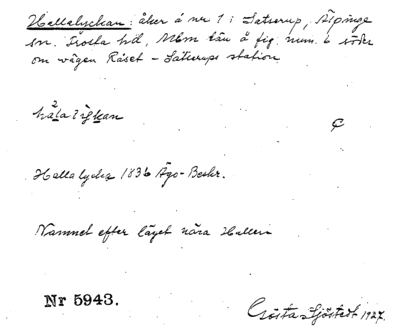 Hallalyckan: åker å nr 1 i Satserup, Älpinge
sn. Frosta hd, Mlm län å fig. num. 6 söder
om vägen Råset - Satserups station.
Hallalycka 1836 Ägo-Beskr.
Namnet efter läget nära Hallen
Nr 5943.
Gösta Sjöstedt 1927.